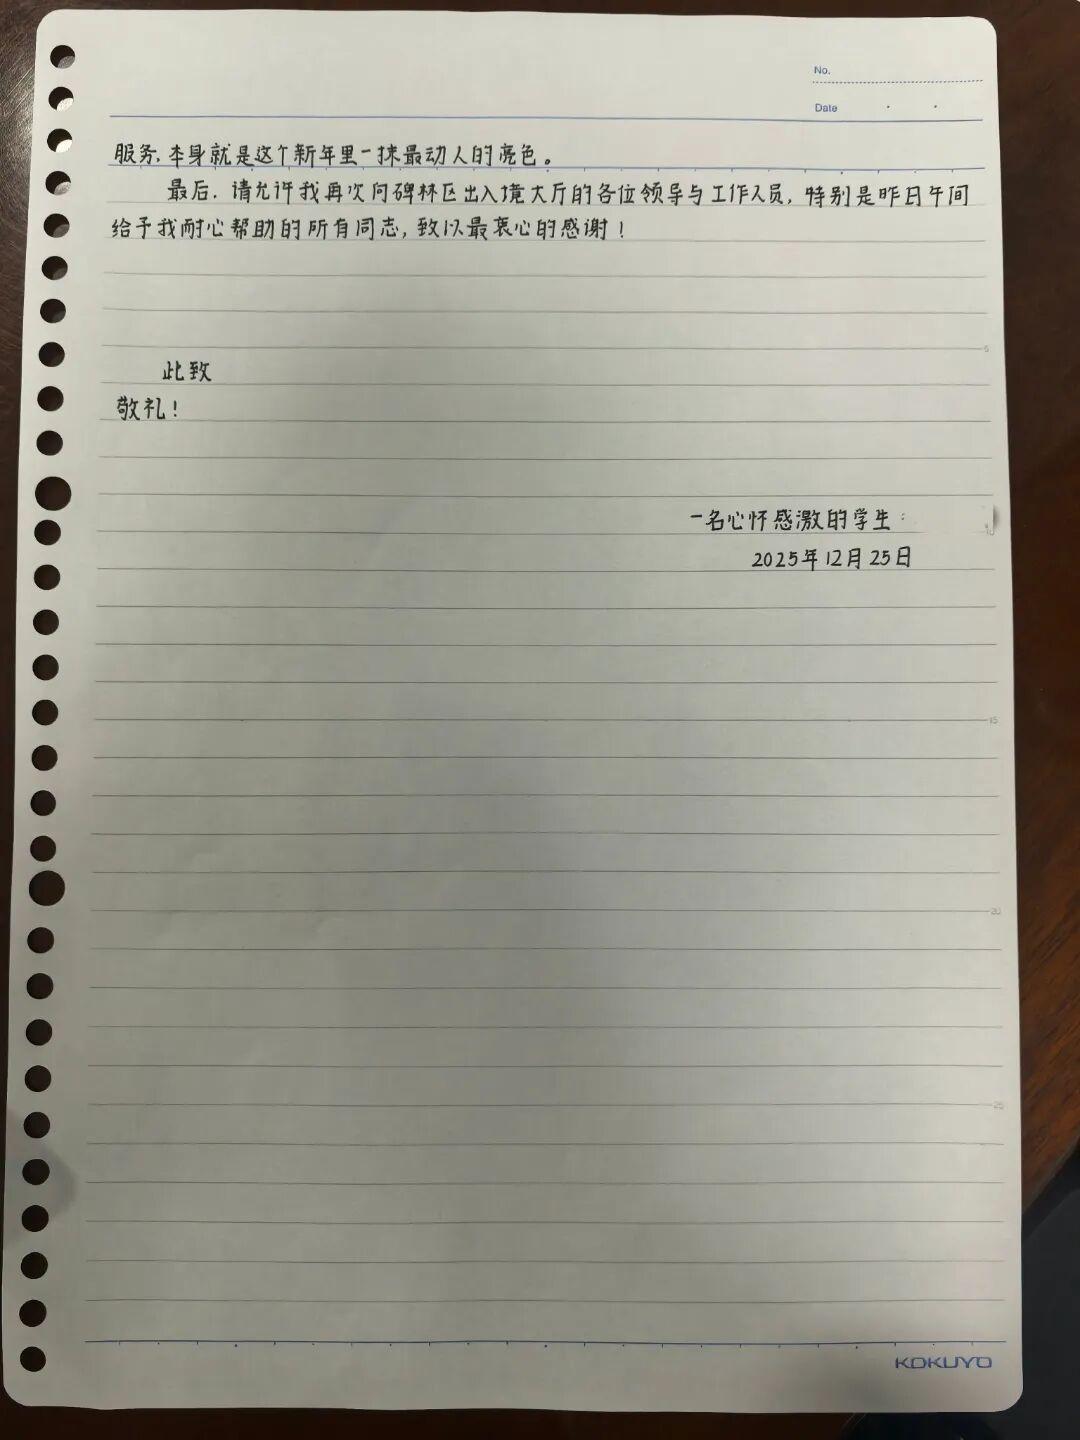 No.
Date
服务,本身就是这个新年里一抹最动人的亮色。
最后,请允许我再次向碑林区出入境大厅的各位领导与工作人员,特别是昨日午间
给予我耐心帮助的所有同志,致以最衷心的感谢!
5
此致
敬礼!
一名心怀感激的学生:
10
2025年12月25日
15
20
25
KOKUYO